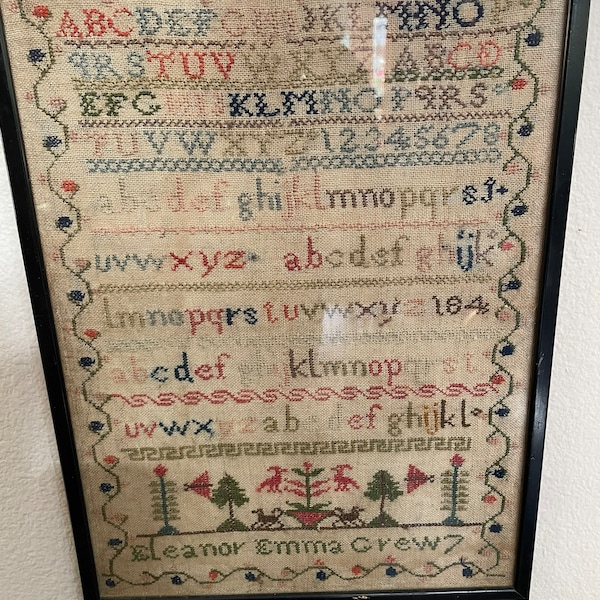 ABCDEFGHIJKLMNOP
QRSTUVWXYZ ABCD
EFGHIJKLMNOPQRS
TUVWXYZ 12345678
abcdefghijklmnopqrst
uvwxyz abcdefghijk
lmnopqrstuvwxyz 184
abcdefghijklmnopqrst
uvwxyzabcdefghijkl
Eleanor Emma Grew 7